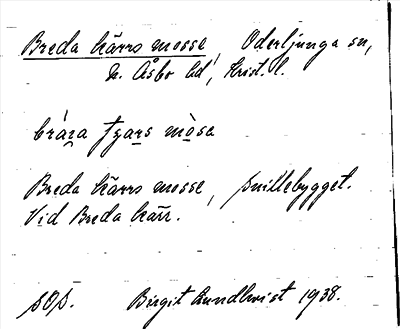 Breda kärrs mosse, Oderljunga sn,
N. Åsbo hd, Krist. l.
bráͅra ɟyars mòsa
Breda kärrs mosse, snillebygget.
Vid Breda kärr.
SOS. Birgit Lundkvist 1938.